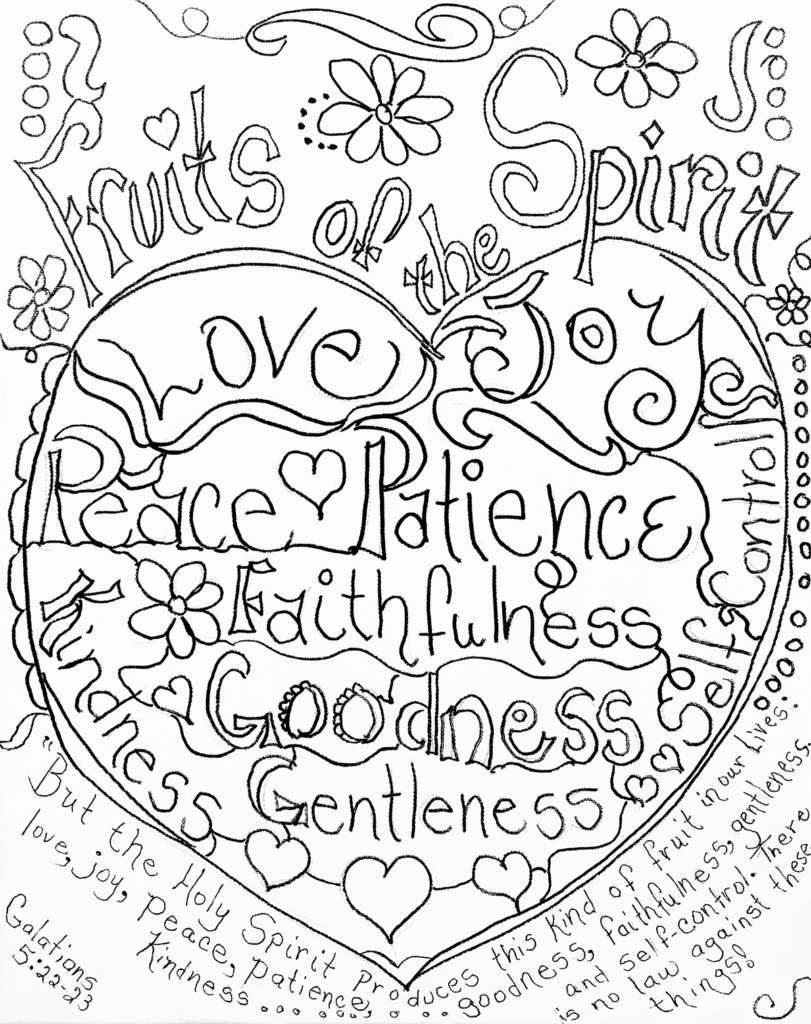 Fruits of the Spirit
Love Joy
Peace Patience
Self Control
Faithfulness
Kindness
Goodness
Gentleness
"But the Holy Spirit produces this kind of fruit in our lives:
love, joy, peace, patience, goodness, faithfulness, gentleness,
Kindness ...... and self-control. There
is no law against these
things!
Galations
5:22-23